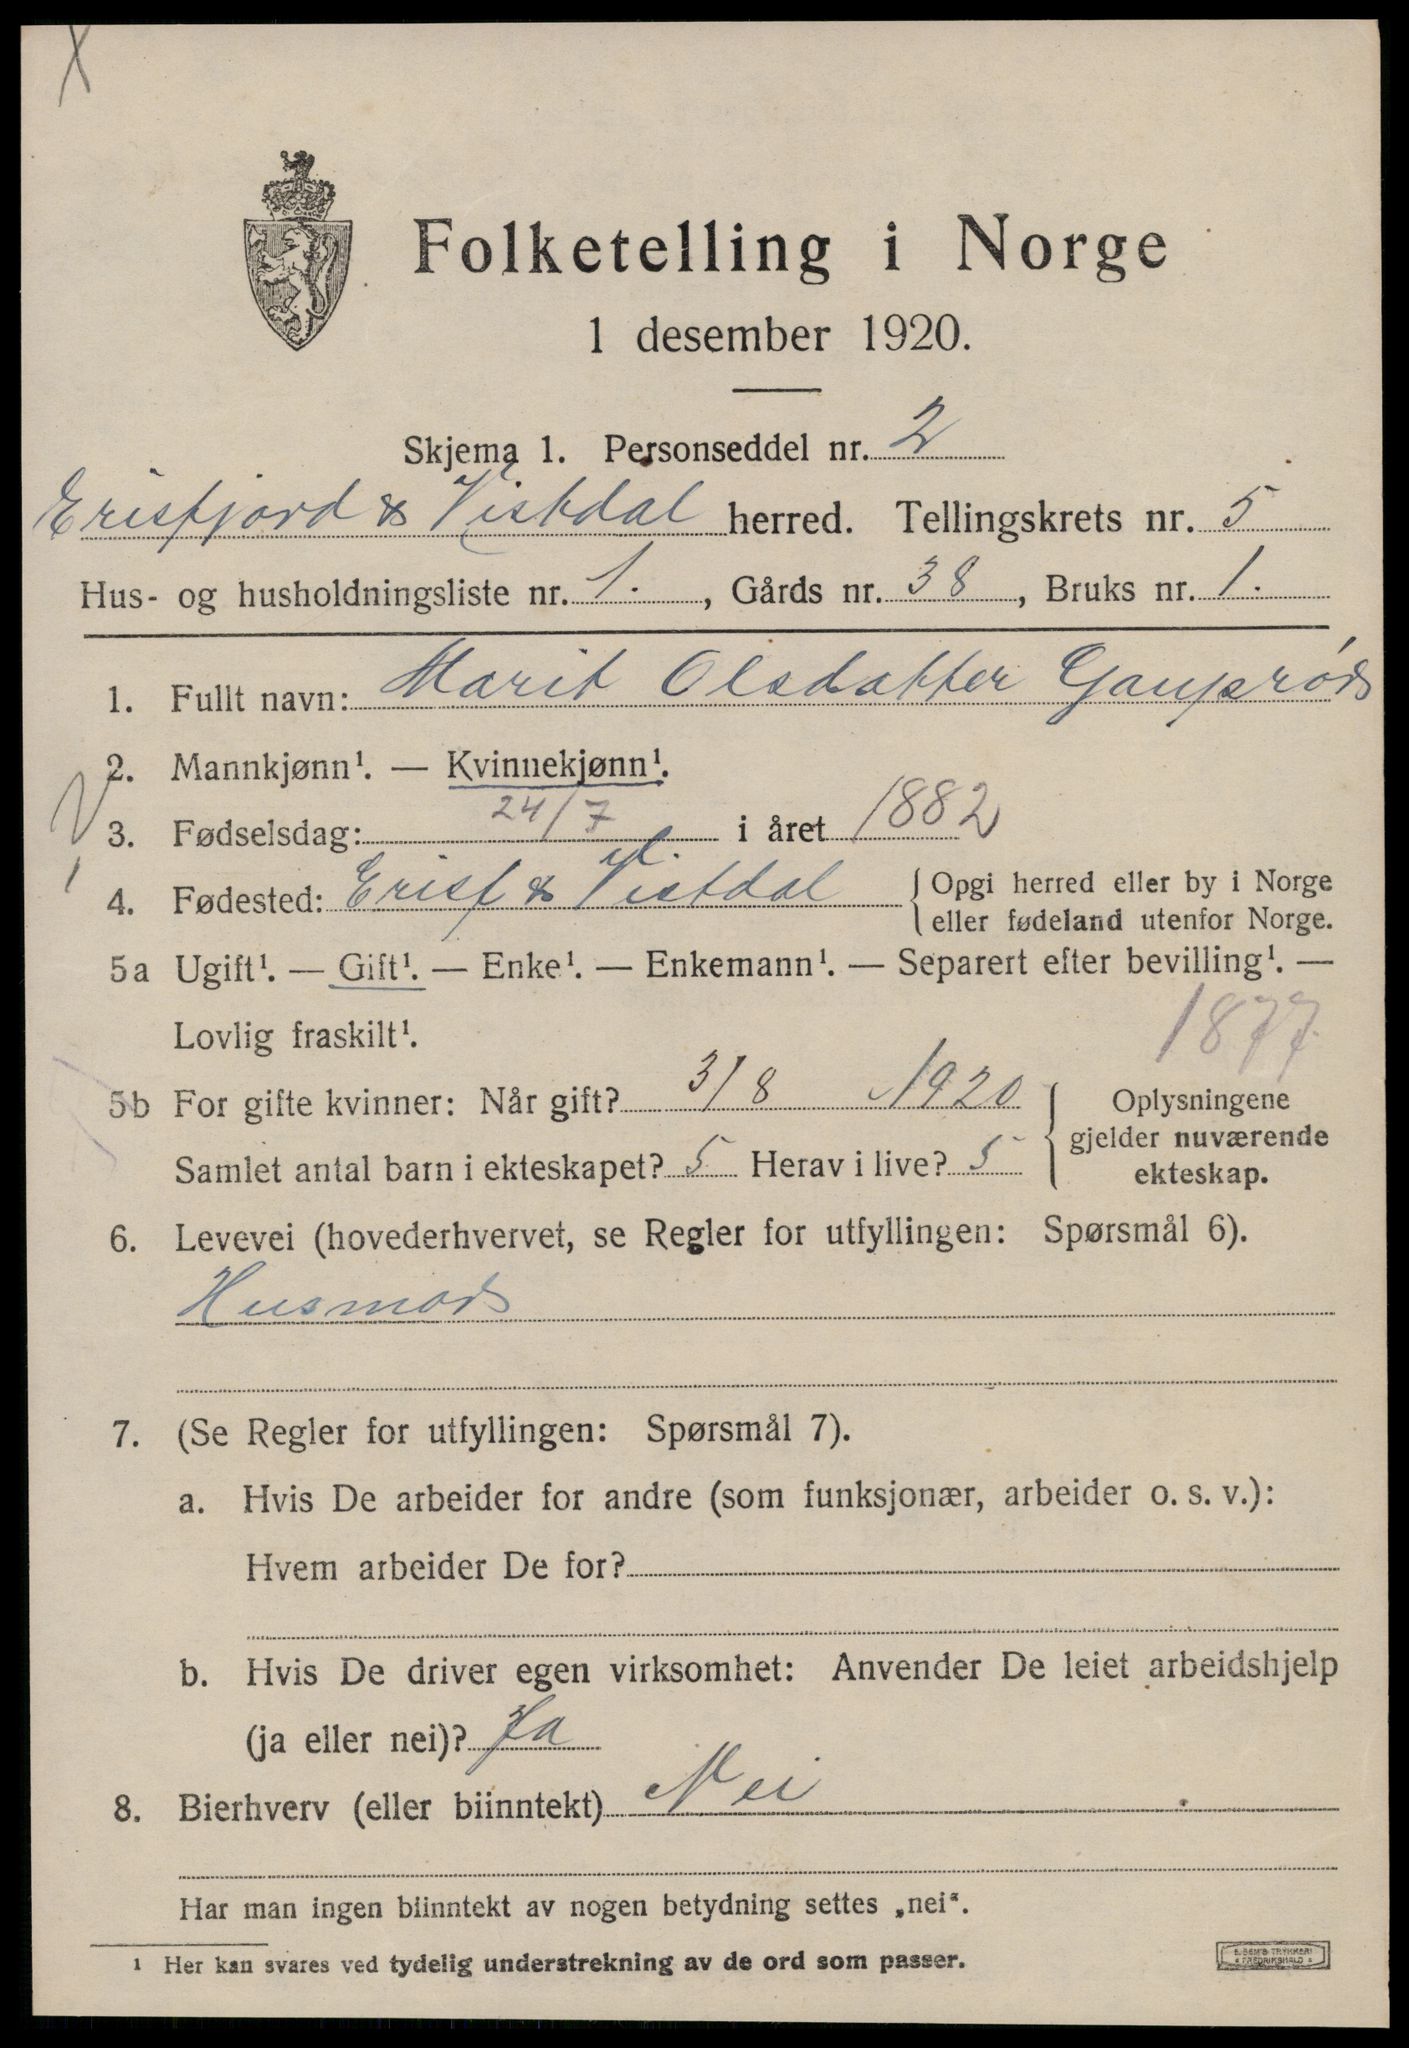 Folketelling i Norge
1 desember 1920.
Skjema 1. Personseddel nr. 2
Erisfjord & Vistdal herred. Tellingskrets nr. 5
Hus- og husholdningsliste nr. 1., Gårds nr. 38, Bruks nr. 1.
1. Fullt navn: Marit Olsdatter Gauprøds
2. Mannkjønn¹. — Kvinnekjønn¹.
3. Fødselsdag: 24/7 i året 1882
4. Fødested: Erisf & Vistdal { Opgi herred eller by i Norge
eller fødeland utenfor Norge.
5a Ugift¹. — Gift¹. — Enke¹. — Enkemann¹. — Separert efter bevilling¹. —
Lovlig fraskilt¹. 1877
5b For gifte kvinner: Når gift? 3/8 1920
Samlet antal barn i ekteskapet? 5 Herav i live? 5
Oplysningene
gjelder nuværende
ekteskap.
6. Levevei (hovederhvervet, se Regler for utfyllingen: Spørsmål 6).
Husmods
7. (Se Regler for utfyllingen: Spørsmål 7).
a. Hvis De arbeider for andre (som funksjonær, arbeider o. s. v.):
Hvem arbeider De for?
b. Hvis De driver egen virksomhet: Anvender De leiet arbeidshjelp
(ja eller nei)? Ja
8. Bierhverv (eller biinntekt) Nei
Har man ingen biinntekt av nogen betydning settes „nei“.
¹ Her kan svares ved tydelig understrekning av de ord som passer.
E. SEM'S TRYKKERI
FREDRIKSHALD